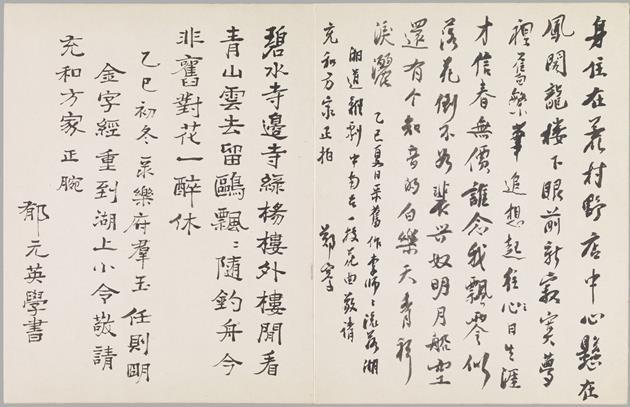 身住在荒村野店中心懸在
鳳閣龍樓下眼前新寂寞夢
裡舊繁華追想起往心日生涯
才信春無價誰念我飄零似
落花倒不如裴興奴明月艇空
還有个知音的白樂天青衫
淚灑
湘道難 中 在一枝花曲敬請
乙巳夏日采舊作李師〻流落湖
充和方家正拍
鄭騫
碧水寺邊寺綠楊樓外樓閒看
青山雲去留鷗飄〻隨釣舟今
非舊對花一醉休
乙巳初冬彔樂府羣玉任則明
金字經重到湖上小令敬請
充和方家正腕
郁元英學書